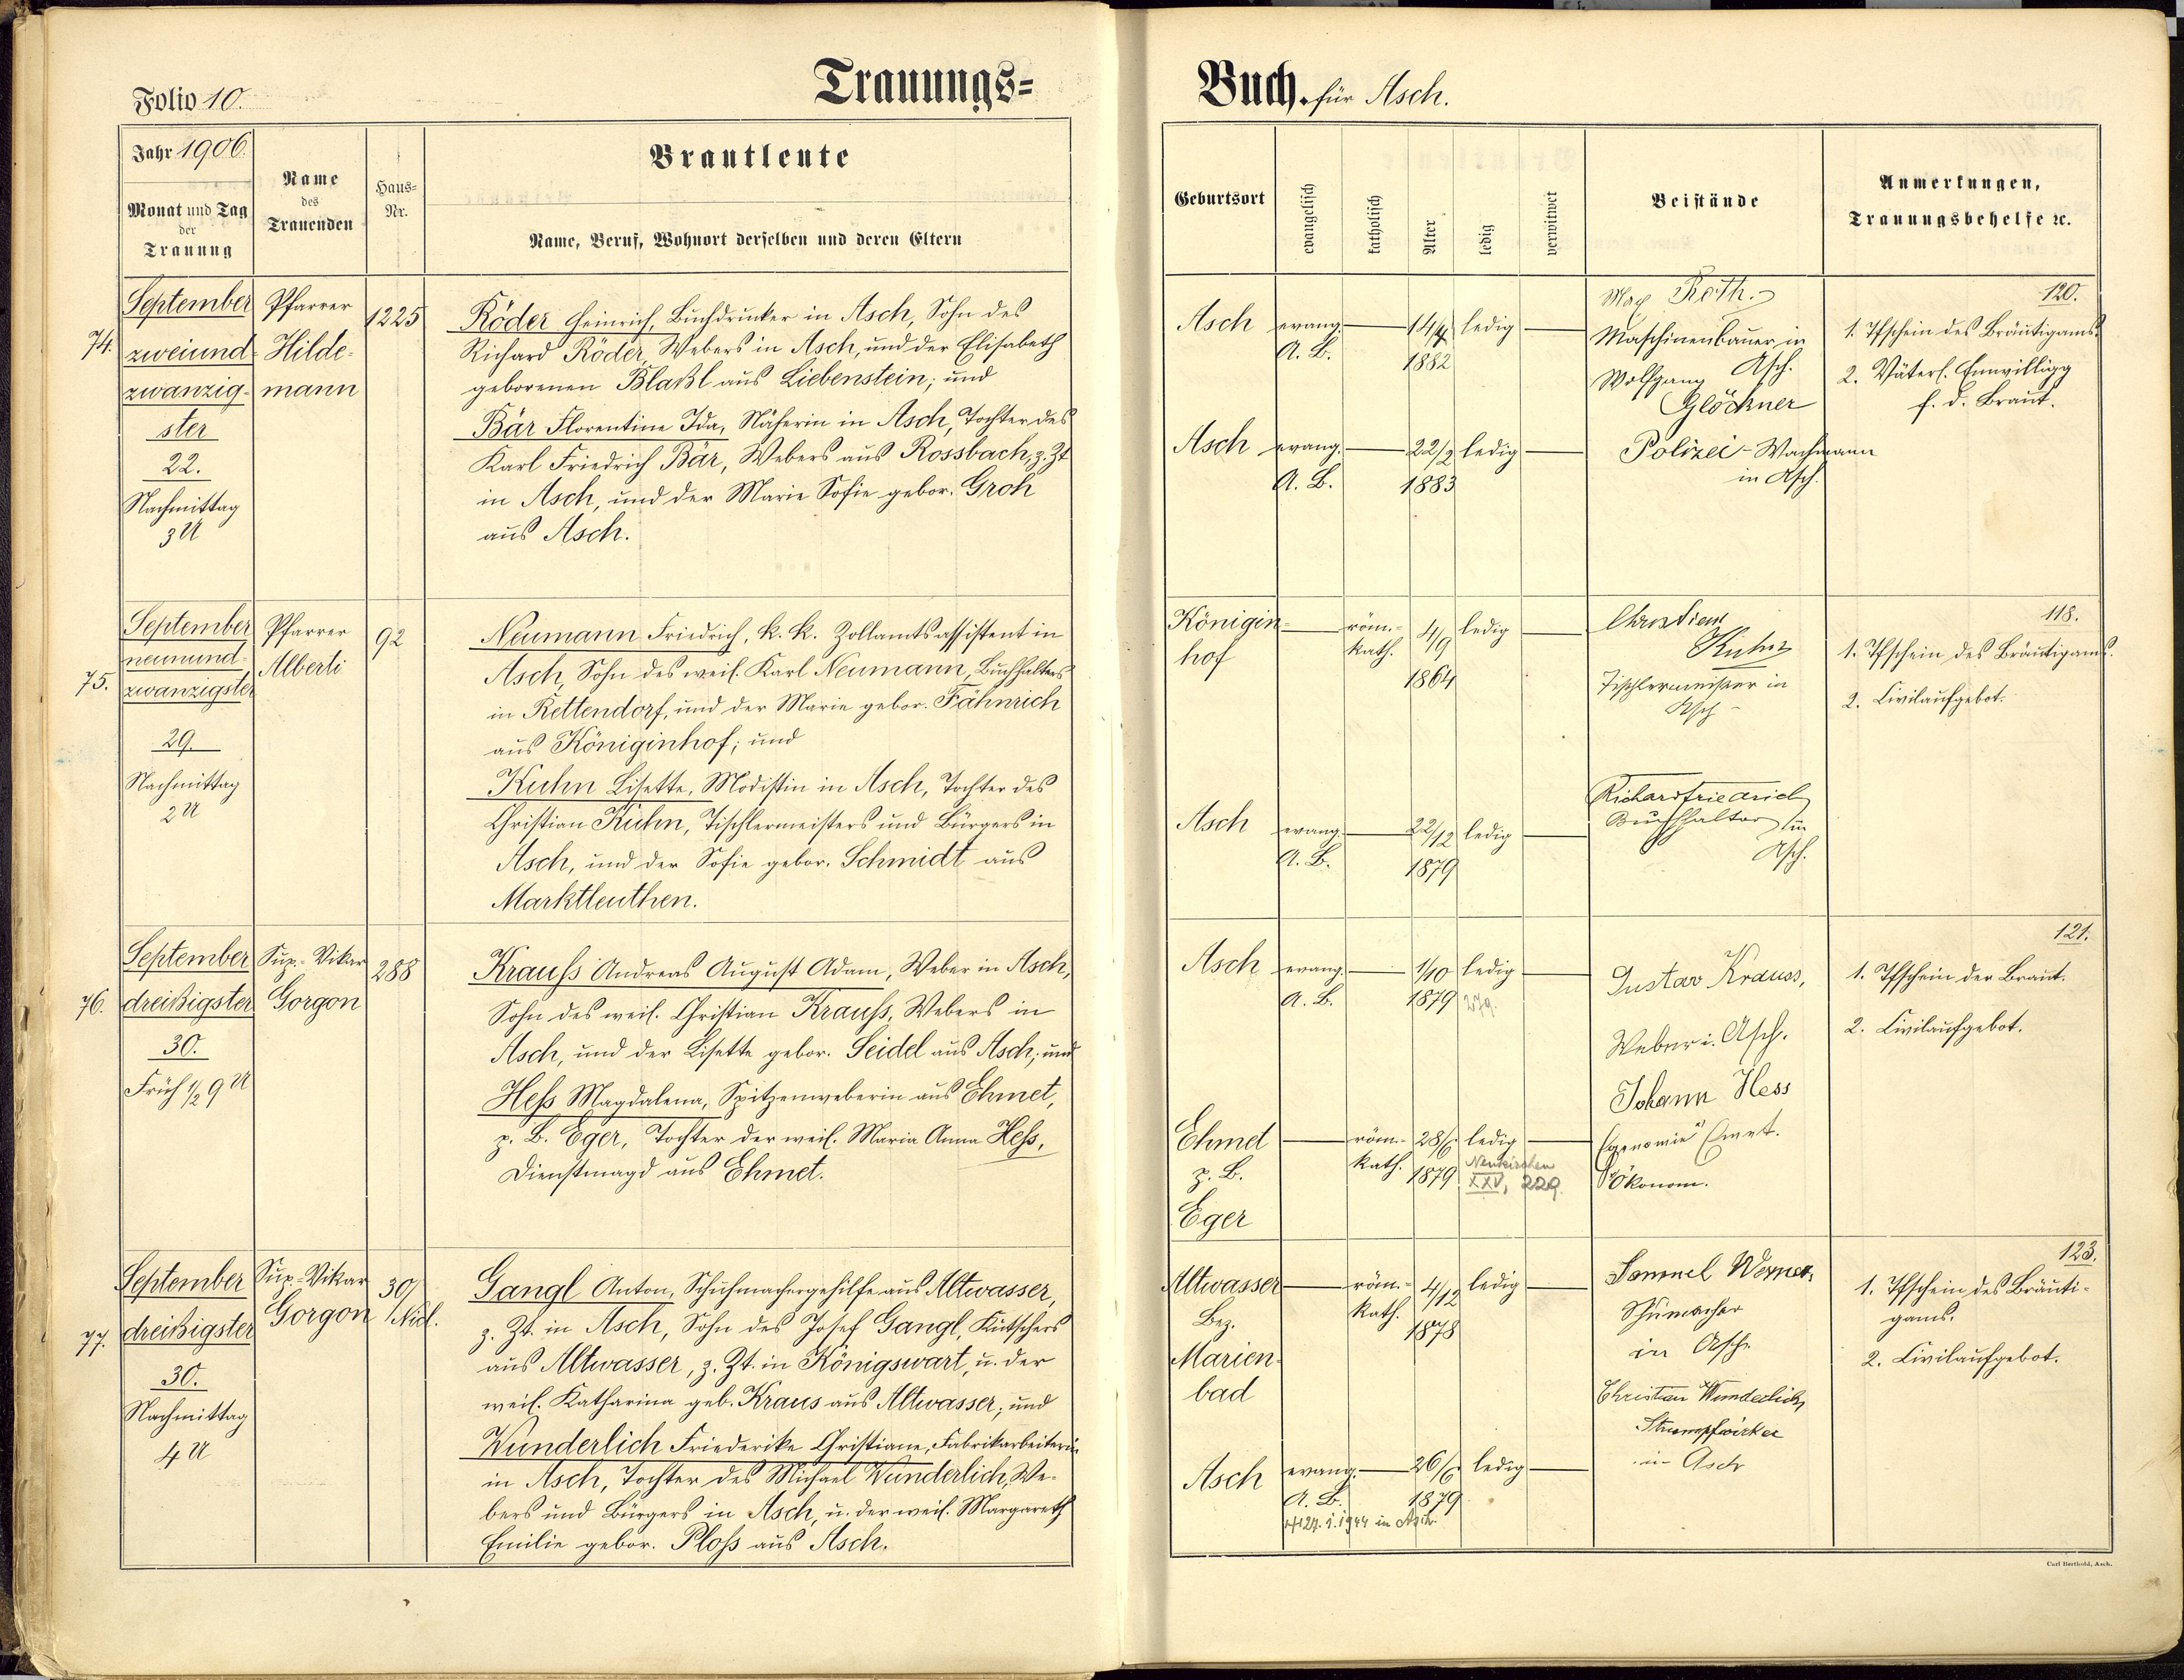 Folio 10.
Trauungs-
Jahr 1906.
Monat und Tag
der
Trauung
Name
des
Trauenden
Haus-
Nr.
Brautleute
Name, Beruf, Wohnort derselben und deren Eltern
74.
September
zweiund-
zwanzig-
ster
22.
Nachmittag
3 U
Pfarrer
Hilde-
mann
1225
Röder Heinrich, Buchdrucker in Asch, Sohn des
Richard Röder, Webers in Asch, und der Elisabeth
geborenen Blaßl aus Liebenstein; und
Bär Florentine Ida, Näherin in Asch, Tochter des
Karl Friedrich Bär, Webers aus Rossbach, z. Zt
in Asch, und der Marie Sofie gebor. Groh
aus Asch.
75.
September
neunund-
zwanzigster
29.
Nachmittag
2 U
Pfarrer
Alberti
92
Neumann Friedrich, k. k. Zollamtsassistent in
Asch, Sohn des weil. Karl Neumann, Buchhalters
in Rettendorf, und der Marie gebor. Fähnrich
aus Königinhof; und
Kuhn Lisette, Modistin in Asch, Tochter des
Christian Kuhn, Tischlermeisters und Bürgers in
Asch, und der Sofie gebor. Schmidt aus
Marktleuthen.
76.
September
dreißigster
30.
Früh 1/2 9 U
Sup.-Vikar
Gorgon
288
Krauss Andreas August Adam, Weber in Asch,
Sohn des weil. Christian Krauss, Webers in
Asch, und der Lisette gebor. Seidel aus Asch; und
Hess Magdalena, Spitzenweberin aus Ehmet,
p. B. Eger, Tochter der weil. Maria Anna Hess,
Dienstmagd aus Ehmet.
77.
September
dreißigster
30.
Nachmittag
4 U
Sup.-Vikar
Gorgon
30/
Nid.
Gangl Anton, Schuhmachergehilfe aus Altwasser,
z. Zt. in Asch, Sohn des Josef Gangl, Kutschers
aus Altwasser, z. Zt. in Königswart, u. der
weil. Katharina geb. Kraus aus Altwasser; und
Wunderlich Friederike Christiane, Fabrikarbeiterin
in Asch, Tochter des Michael Wunderlich, We-
bers und Bürgers in Asch, u. der weil. Margareth
Emilie gebor. Ploss aus Asch.
Buch. für Asch.
Geburtsort
evangelisch
katholisch
Alter
ledig
verwitwet
Beistände
Anmerkungen,
Trauungsbehelfe ꝛc.
Asch
evang.
A. B.
14/4
1882
ledig
Max Roth.
Maschinenbauer in
Asch.
Wolfgang
Glöckner
Polizei-Wachmann
in Asch.
120.
1. Tfschein des Bräutigams.
2. Väterl. Einwilligg
f. d. Braut.
Asch
evang.
A. B.
22/2
1883
ledig
Königin-
hof
röm.-
kath.
4/9
1864
ledig
Christian
Kuhn
Tischlermeister in
Asch
118.
1. Tfschein des Bräutigams.
2. Civilaufgebot.
Asch
evang.
A. B.
22/12
1879
ledig
Richard Friedrich
Buchhalter in
Asch.
Asch
evang.
A. B.
1/10
1879
ledig
279.
Gustav Krauss,
Weber i. Asch.
Johann Hess
121.
1. Tfschein der Braut.
2. Civilaufgebot.
Ehmet
p. B.
Eger
röm.-
kath.
28/6
1879
ledig
Neukirchen
XXV, 229
Emet.
Ökonom.
Altwasser
Bez.
Marien-
bad
röm.-
kath.
4/12
1878
ledig
Samuel Werner,
Schumacher
in Asch
Christian Wunderlich
Strumpfwirker
in Asch
123.
1. Tfschein des Bräuti-
gams.
2. Civilaufgebot.
Asch
evang.
A. B.
26/6
1879
ledig
24. 1. 1944 in Asch.
Carl Berthold, Asch.